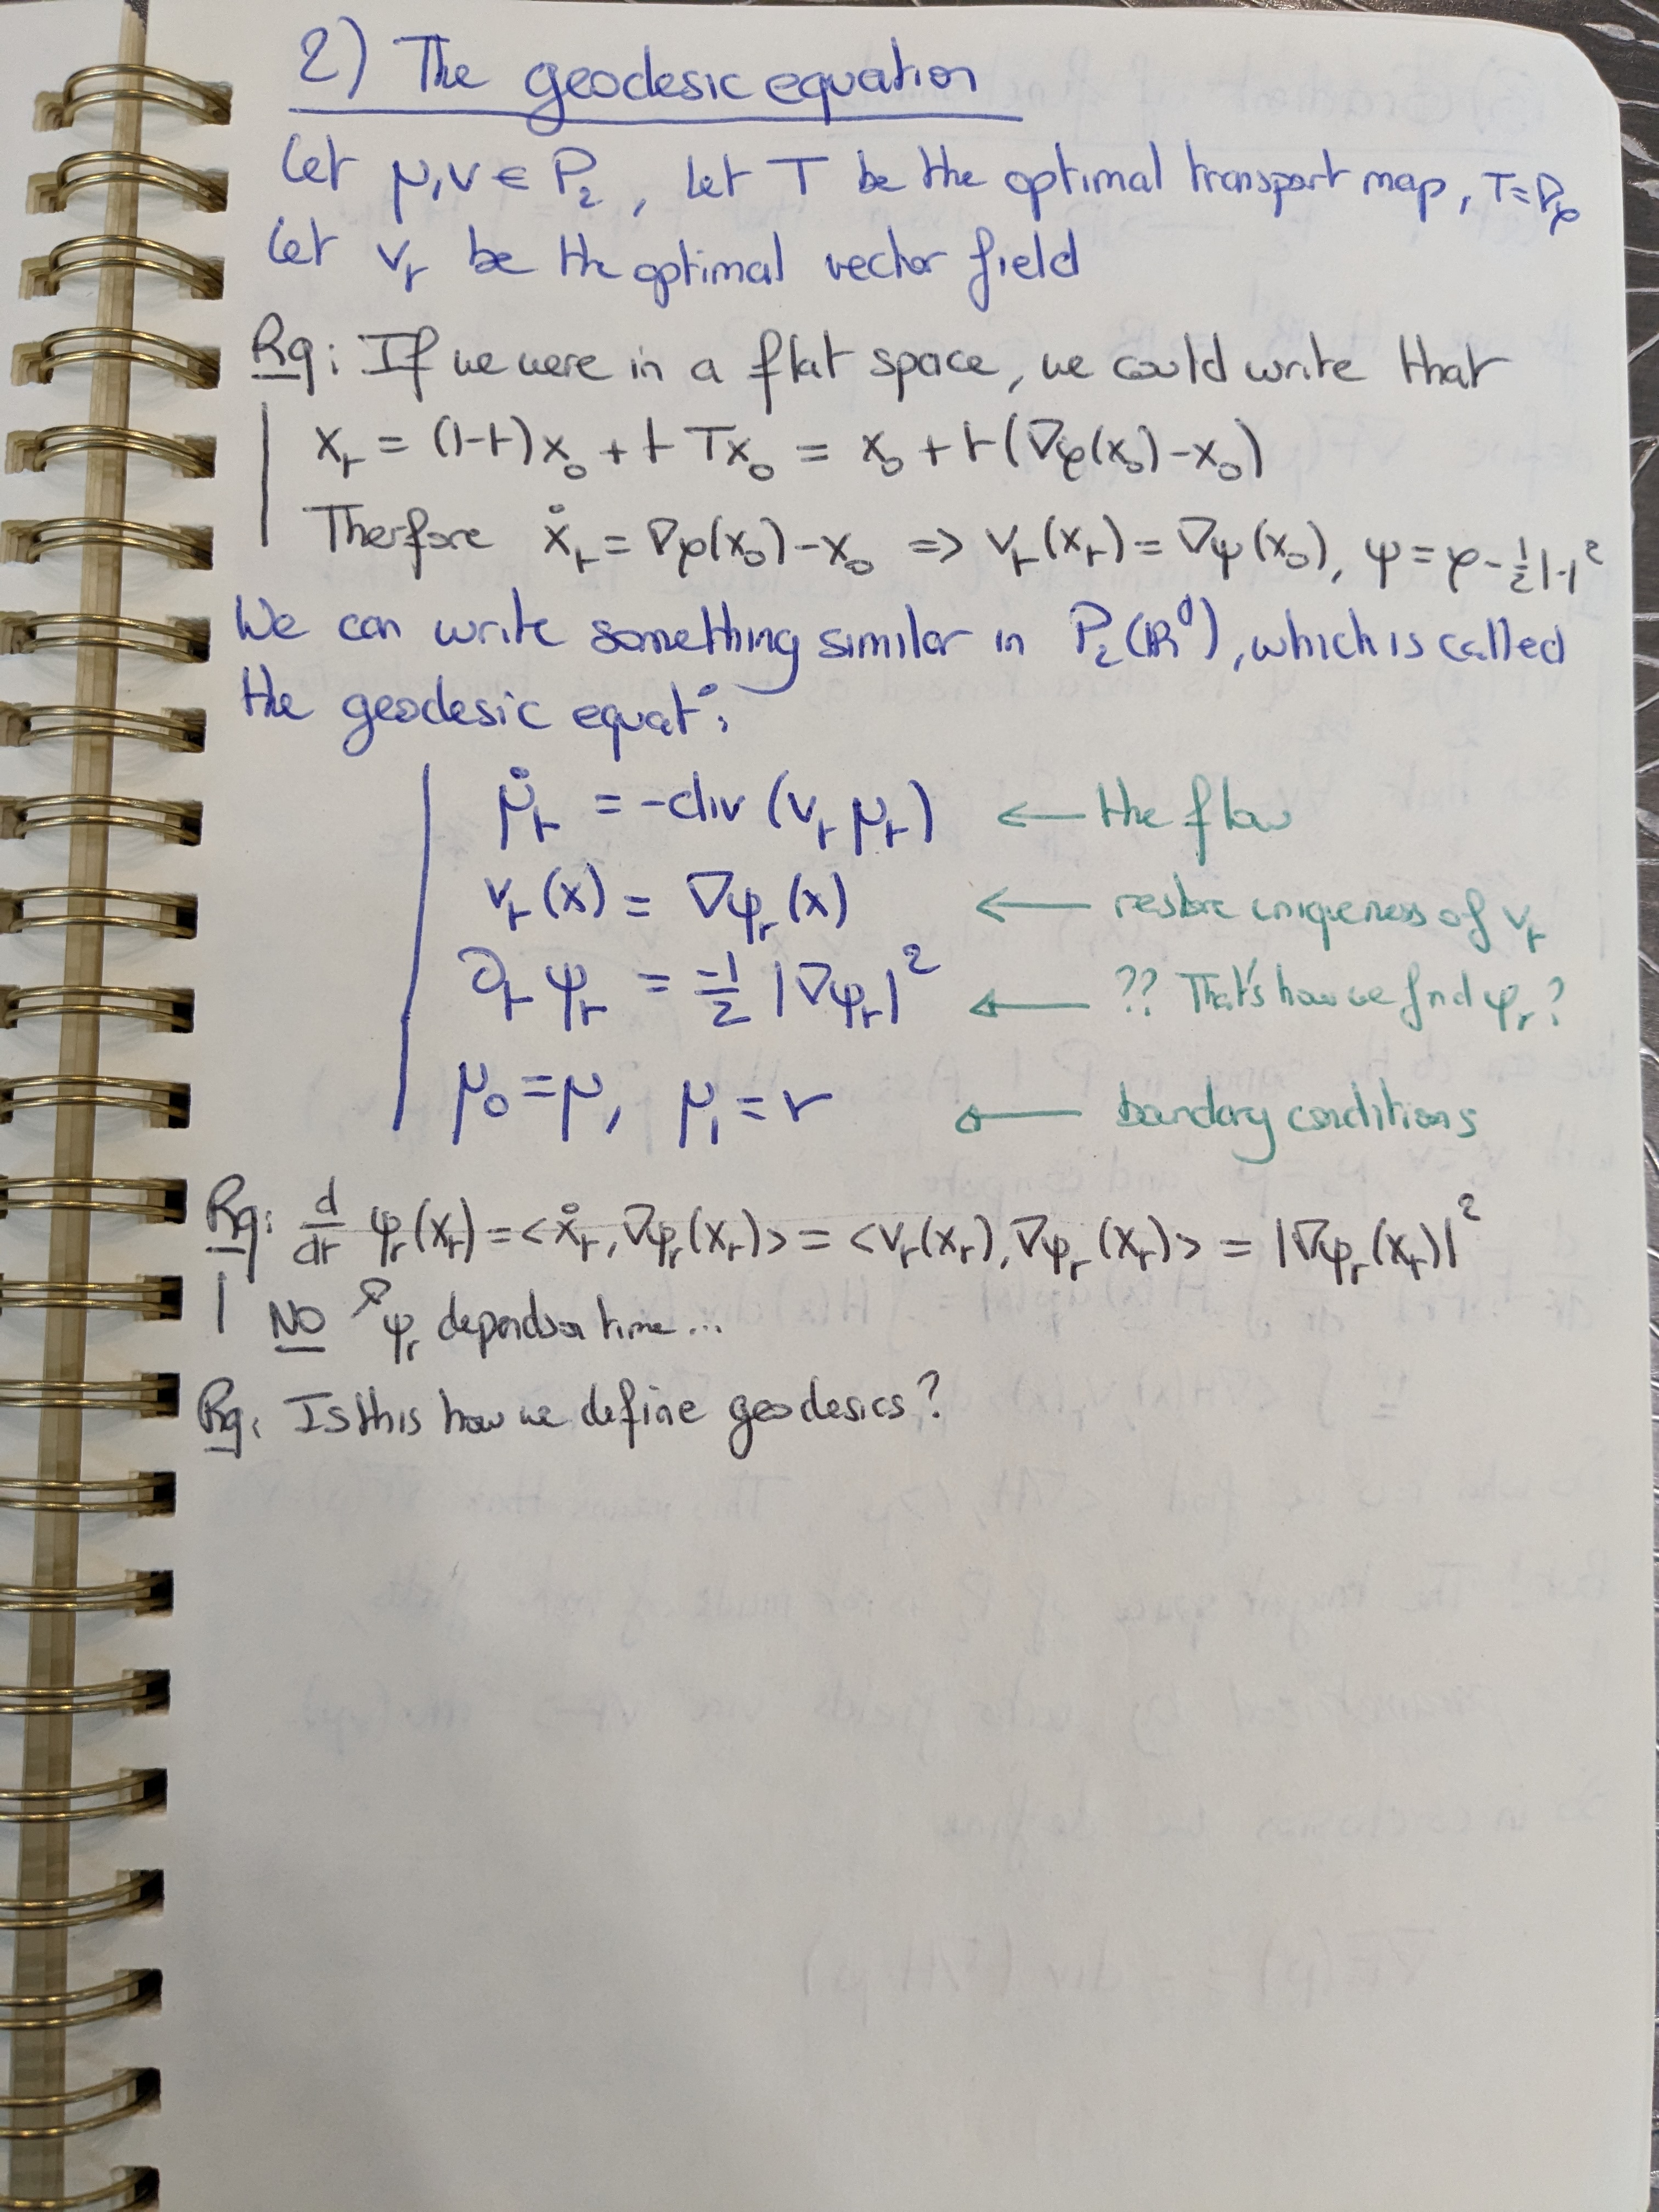 2) The geodesic equation
Let μ, ν ∈ P₂, let T be the optimal transport map, T = ∇φ
Let v_t be the optimal vector field
Rq: If we were in a flat space, we could write that
x_t = (1-t)x₀ + t Tx₀ = x₀ + t(∇φ(x₀) - x₀)
Therfore ẋ_t = ∇φ(x₀) - x₀ => v_t(x_t) = ∇ψ(x₀), ψ = φ - ½|·|²
We can write something similar in P₂(ℝᵈ), which is called
the geodesic equat°:
μ̇_t = -div(v_t μ_t) ← the flow
v_t(x) = ∇ψ_t(x) ← restore uniqueness of v_t
∂_t ψ_t = -1/2 |∇ψ_t|² ← ?? That's how we find ψ_t?
μ₀ = μ, μ₁ = ν ← boundary conditions
Rq: d/dt ψ_t(x_t) = <ẋ_t, ∇ψ_t(x_t)> = <v_t(x_t), ∇ψ_t(x_t)> = |∇ψ_t(x_t)|²
NO ↗ ψ_t depends on time...
Rq: Is this how we define geodesics?